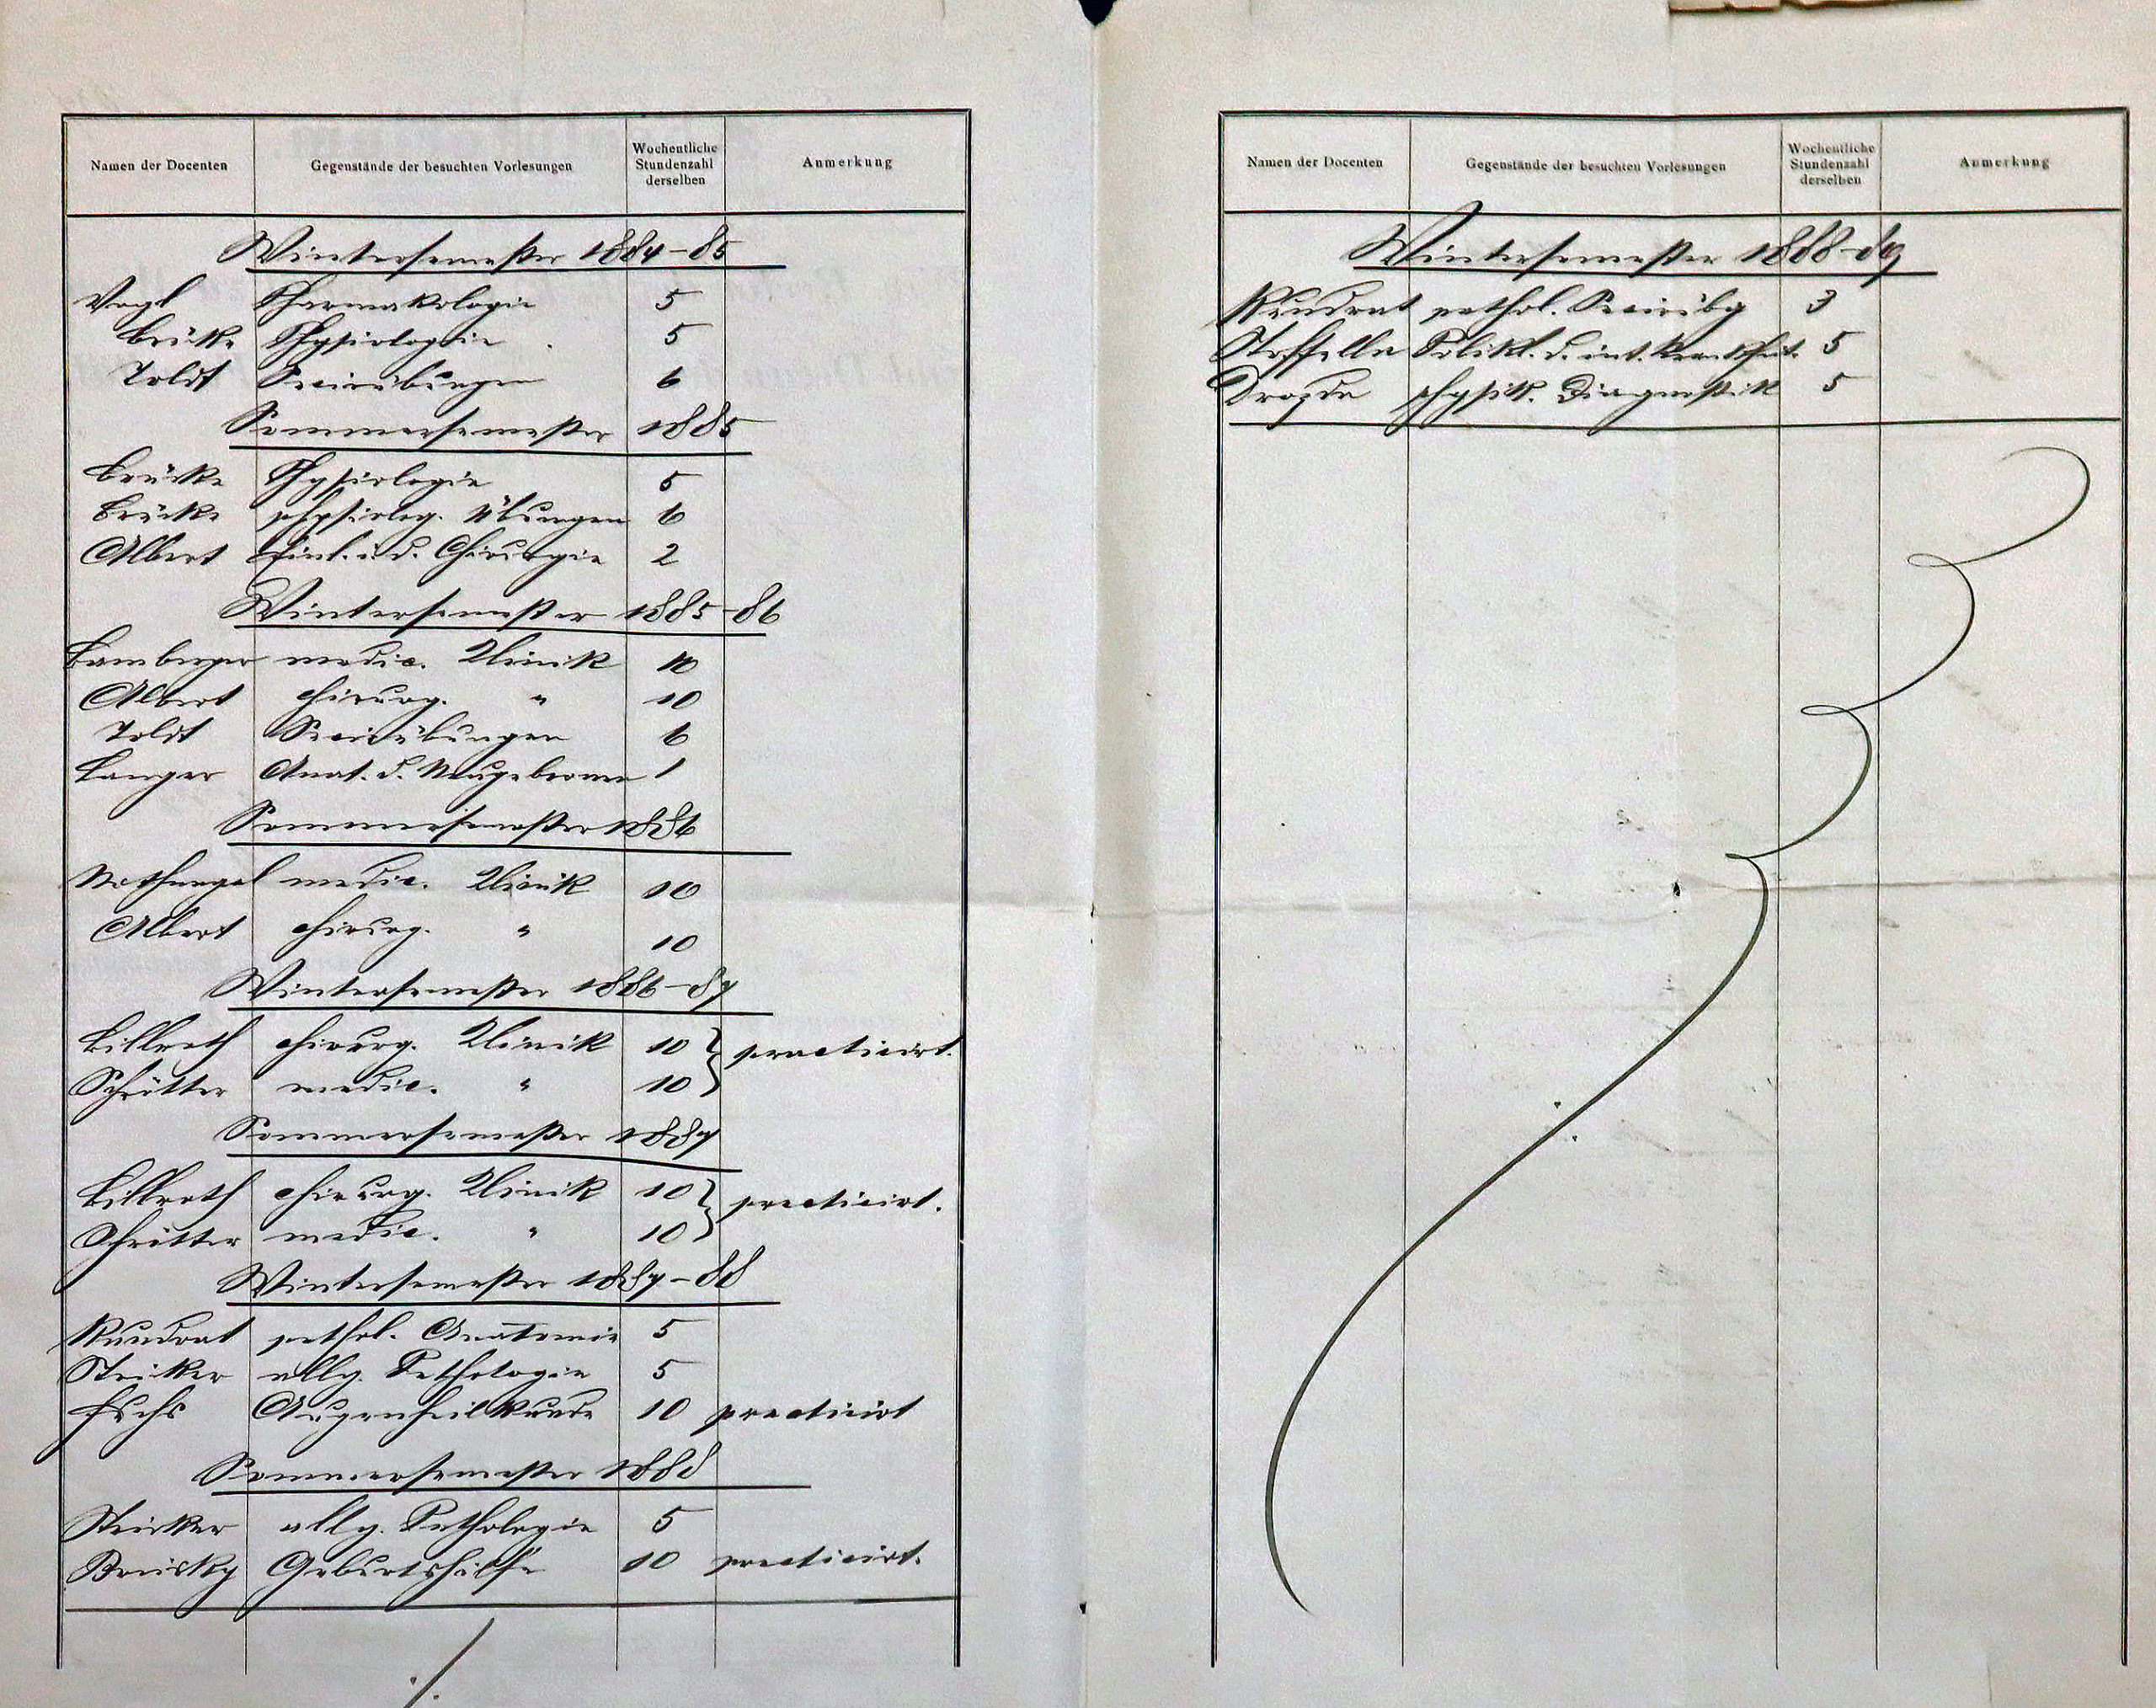 Namen der Docenten Gegenstände der besuchten Vorlesungen Wochentliche Stundenzahl derselben Anmerkung
Wintersemester 1884-85
Vogl Pharmakologie 5
Brücke Physiologie 5
Toldt Secirübungen 6
Sommersemester 1885
Brücke Physiologie 5
Brücke physiolog. Übungen 6
Albert Einl. i. d. Chirurgie 2
Wintersemester 1885-86
Bamberger medic. Klinik 10
Albert chirurg. " 10
Toldt Secirübungen 6
Langer Anat. d. Neugeborenen 1
Sommersemester 1886
Nothnagel medic. Klinik 10
Albert chirurg. " 10
Wintersemester 1886-87
Billroth chirurg. Klinik 10 practicirt.
Schrötter medic. " 10
Sommersemester 1887
Billroth chirurg. Klinik 10 practicirt.
Schrötter medic. " 10
Wintersemester 1887-88
Kundrat pathol. Anatomie 5
Stricker allg. Pathologie 5
Fuchs Augenheilkunde 10 practicirt
Sommersemester 1888
Stricker allg. Pathologie 5
Breisky Geburtshilfe 10 practicirt.
./.
Namen der Docenten Gegenstände der besuchten Vorlesungen Wochentliche Stundenzahl derselben Anmerkung
Wintersemester 1888-89
Kundrat pathol. Secirübg 3
Stoffella Polikl. d. int. Krankheit. 5
Drozda physik. Diagnostik 5